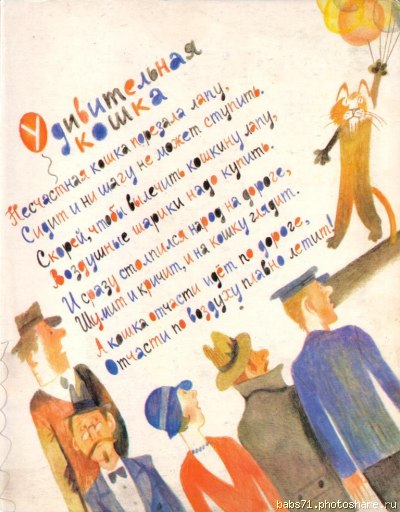 Удивительная
кошка
Несчастная кошка порезала лапу,
Сидит и ни шагу не может ступить.
Скорей, чтобы вылечить кошкину лапу,
Воздушные шарики надо купить.
И сразу столпился народ на дороге,
Шумит и кричит, и на кошку глядит.
А кошка отчасти идёт по дороге,
Отчасти по воздуху плавно летит!
babs71.photoshare.ru